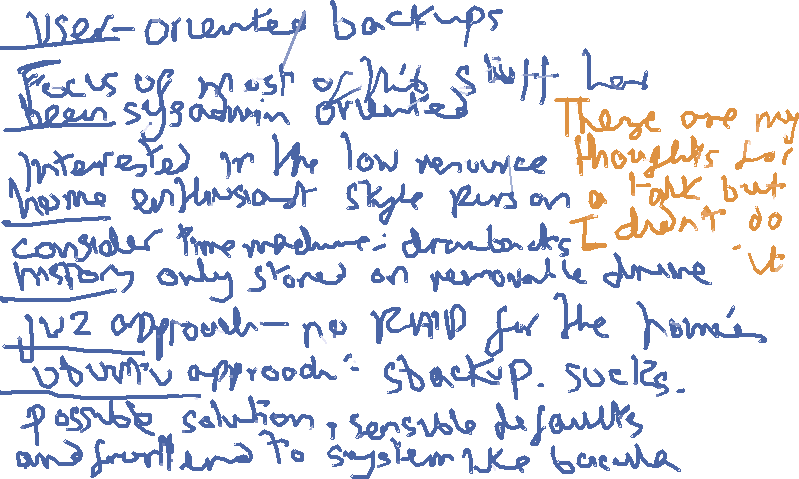 User-oriented backups
Focus of most of this stuff has
been sysadmin oriented
interested in the low resource
home enthusiast style person
consider time machine: drawbacks
history only stored on removable drive
approach - no RAID for the home
ubuntu approach: sbackup. sucks.
possible solution, sensible defaults
and frontend to system like bacula
These are my
thoughts for
a talk but
I didn't do
it